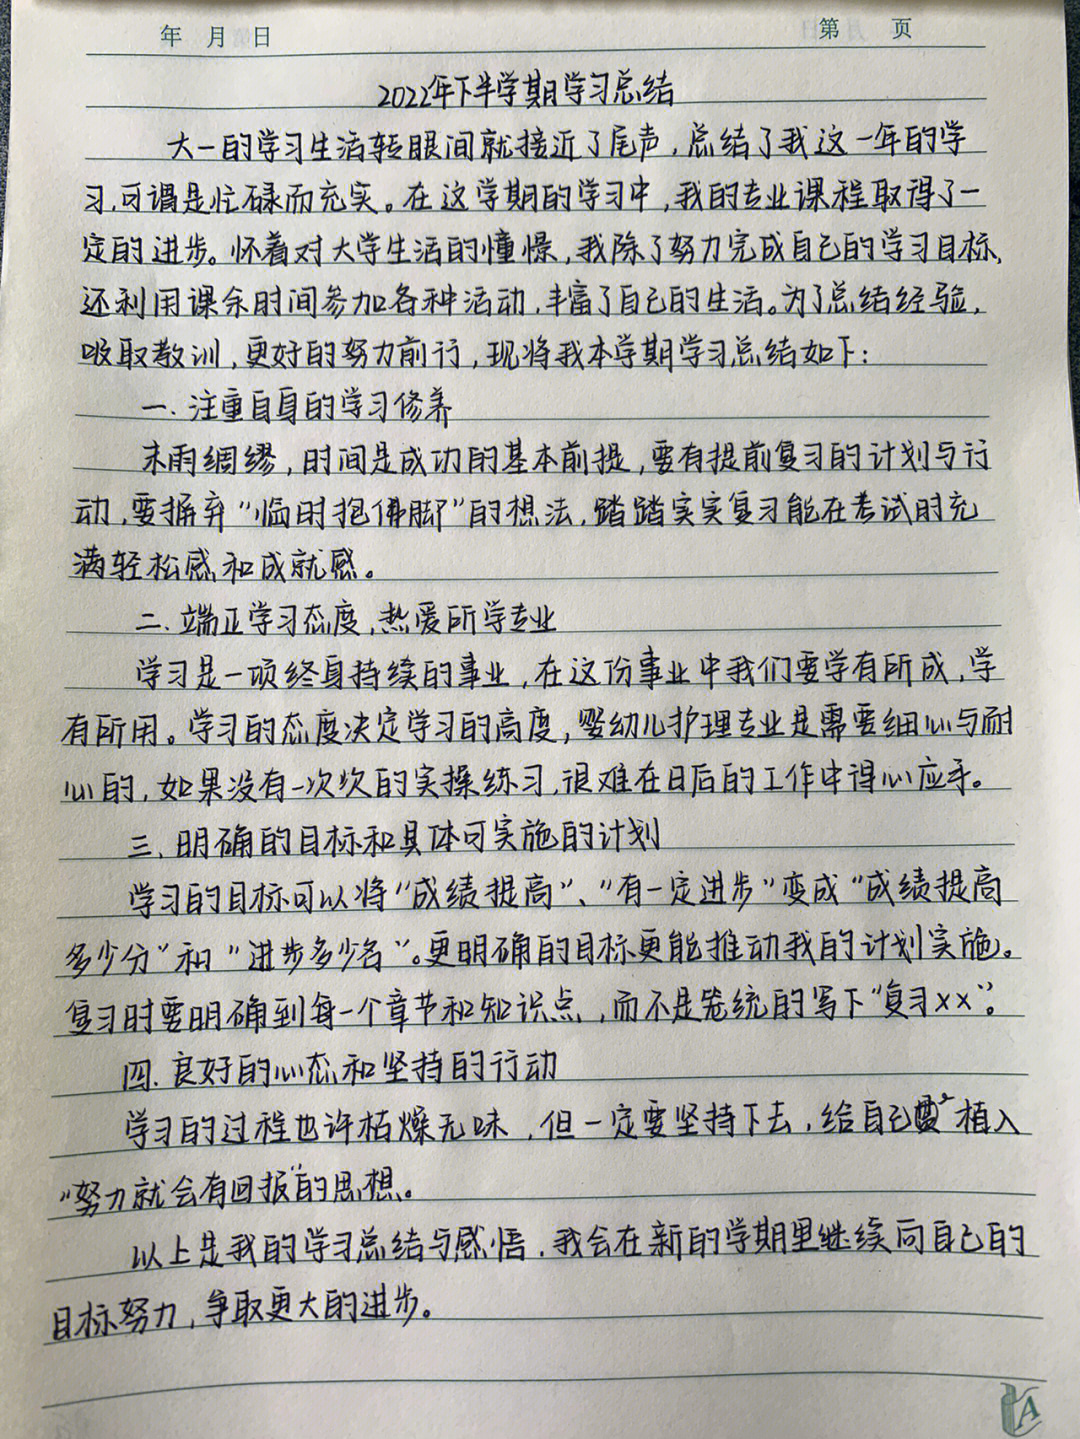 年 月 日 第 页
2022年下半学期学习总结
大一的学习生活转眼间就接近了尾声,总结了我这一年的学
习,可谓是忙碌而充实。在这学期的学习中,我的专业课程取得了一
定的进步。怀着对大学生活的憧憬,我除了努力完成自己的学习目标,
还利用课余时间参加各种活动,丰富了自己的生活。为了总结经验,
吸取教训,更好的努力前行,现将我本学期学习总结如下:
一.注重自身的学习修养
未雨绸缪,时间是成功的基本前提,要有提前复习的计划与行
动,要摒弃“临时抱佛脚”的想法,踏踏实实复习能在考试时充
满轻松感和成就感。
二.端正学习态度,热爱所学专业
学习是一项终身持续的事业,在这份事业中我们要学有所成,学
有所用。学习的态度决定学习的高度,婴幼儿护理专业是需要细心与耐
心的,如果没有一次次的实操练习,很难在日后的工作中得心应手。
三.明确的目标和具体可实施的计划
学习的目标可以将“成绩提高”、“有一定进步”变成“成绩提高
多少分”和“进步多少名”。更明确的目标更能推动我的计划实施。
复习时要明确到每一个章节和知识点,而不是笼统的写下“复习xx”。
四.良好的心态和坚持的行动
学习的过程也许枯燥无味,但一定要坚持下去,给自己植入
“努力就会有回报”的思想。
以上是我的学习总结与感悟,我会在新的学期里继续向自己的
目标努力,争取更大的进步。
A